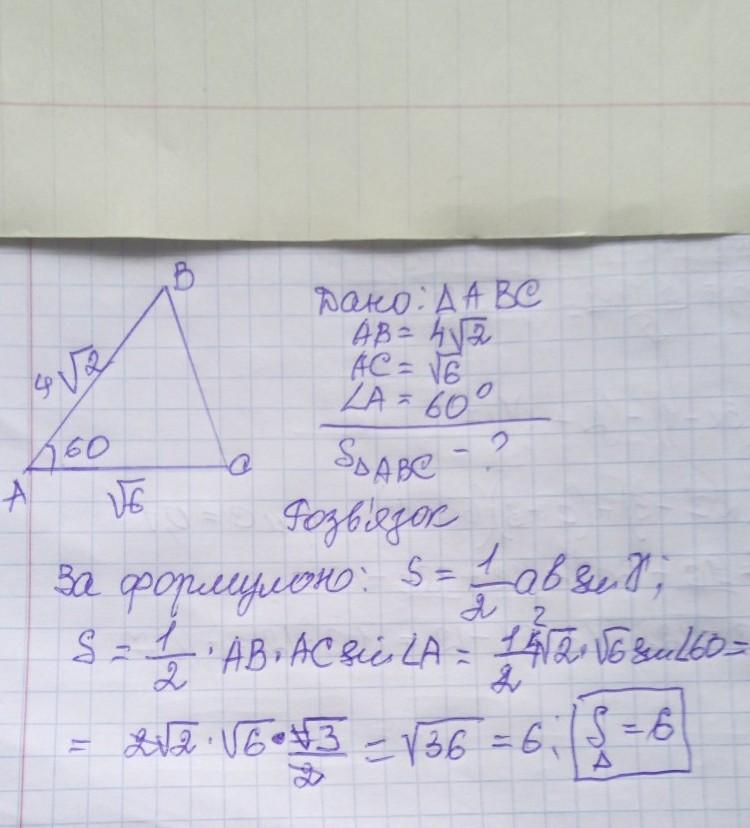 B
4√2
60
A
C
√6
Дано: Δ ABC
AB = 4√2
AC = √6
∠A = 60°
S△ABC - ?
Розв'язок
За формулою: S = 1/2 ab sin γ;
S = 1/2 · AB · AC sin ∠A = 1/2 4√2 · √6 sin ∠60 =
2
= 2√2 · √6 · √3/2 = √36 = 6; S△ = 6